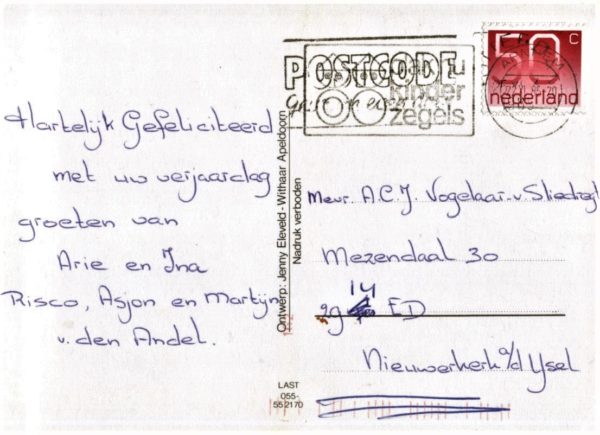 Hartelijk Gefeliciteerd
met uw verjaardag
groeten van
Arie en Ina
Risco, Asjon en Martijn
v. den Andel.
Ontwerp: Jenny Eleveld - Withaar Apeldoorn
Nadruk verboden
LAST
055-
552170
POSTCODE
kinder
zegels
50 c
nederland
Mevr. A.C.J. Vogelaar-v Sliedregt
Mezendaal 30
29 14 ED
Nieuwerkerk a/d Ysel